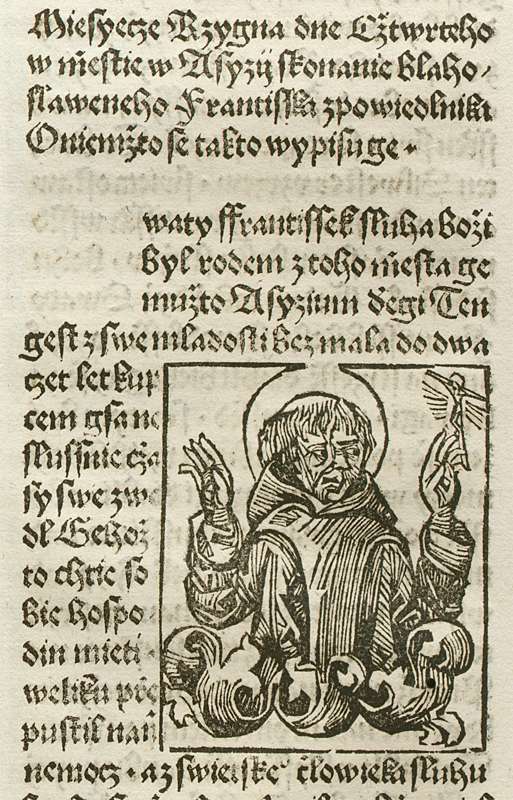 Miesyecze Rzygna dne Cžtwrteho
w miestie w Asyzij skonanie blaho⸗
slaweneho Frantisska zpowiedlnika
O niemžto se takto wypisuge •
waty ffrantissek sluha boží
byl rodem z toho miesta ge
mužto Asyzium diegi Ten
gest z swe mladosti bez mala do dwa
czet let kup
cem gsa ne
slussnie cža
sy swe zwe
dl Gehož
to chtie so
bie hospo
din mieti
weliku pře
pustil naň
nemocz • a z swietske člowieka sluhu